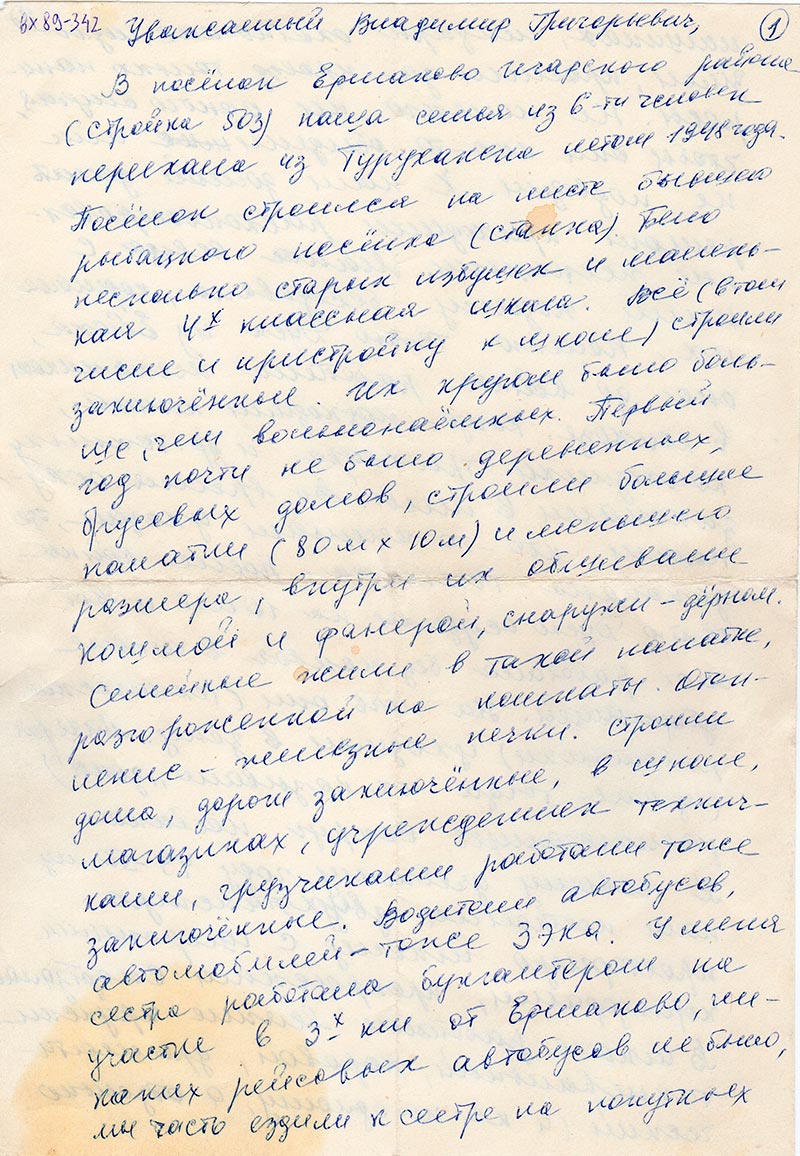 вх 89-342
Уважаемый Владимир Григорьевич,
1
В посёлок Ермаково Игарского района
(стройка 503) наша семья из 6-ти человек
переехала из Туруханска летом 1948 года.
Посёлок строился на месте бывшего
рыбацкого посёлка (станка). Было
несколько старых избушек и малень-
кая 4х классная школа. Всё (в том
числе и пристройку к школе) строили
заключённые. Их кругом было боль-
ше, чем вольнонаёмных. Первый
год почти не было деревянных,
брусовых домов, строили большие
палатки (80м х 10м) и меньшего
размера, внутри их обшивали
кошмой и фанерой, снаружи – дёрном.
Семейные жили в такой палатке,
разгороженной на комнаты. Отоп-
ление – железные печки. Строили
дома, дороги заключённые, в школе,
магазинах, учреждениях технич-
ками, грузчиками работали тоже
заключённые. Водители автобусов,
автомобилей – тоже зэка. У меня
сестра работала бухгалтером на
участке в 3х км от Ермаково, ни-
каких рейсовых автобусов не было,
мы часто ездили к сестре на попутных